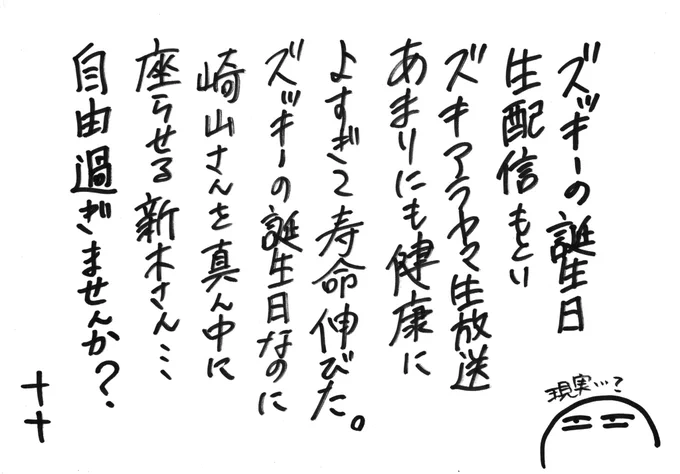 ズッキーの誕生日
生配信もとい
ズキアラヤマ生放送
あまりにも健康に
よすぎて寿命伸びた。
ズッキーの誕生日なのに
崎山さんを真ん中に
座らせる新木さん…
自由過ぎませんか?
++
現実…?